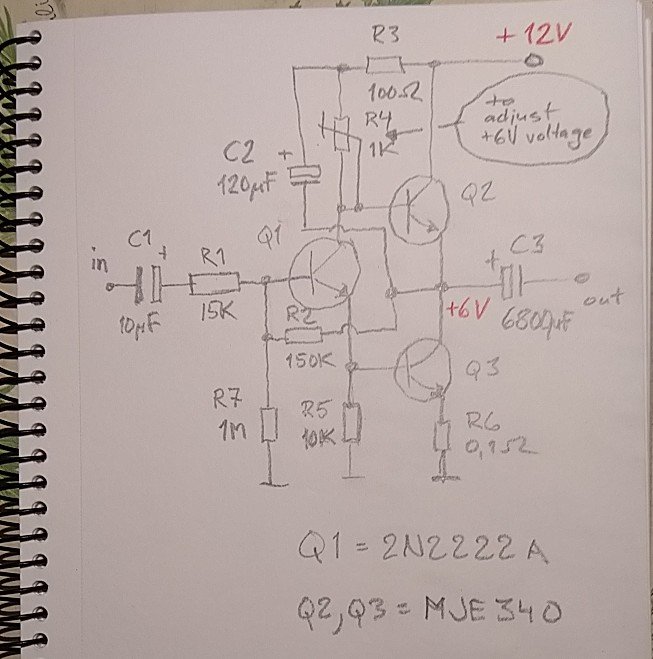 R3
+12V
100Ω
to
adjust
+6V voltage
R4
1K
C2 +
120µF
Q2
Q1
C1
+
in
R1
C3
+
10µF
15K
out
R2
+6V
6800µF
150K
Q3
R7
1M
R5
10K
R6
Q1 = 2N2222A
Q2,Q3 = MJE340